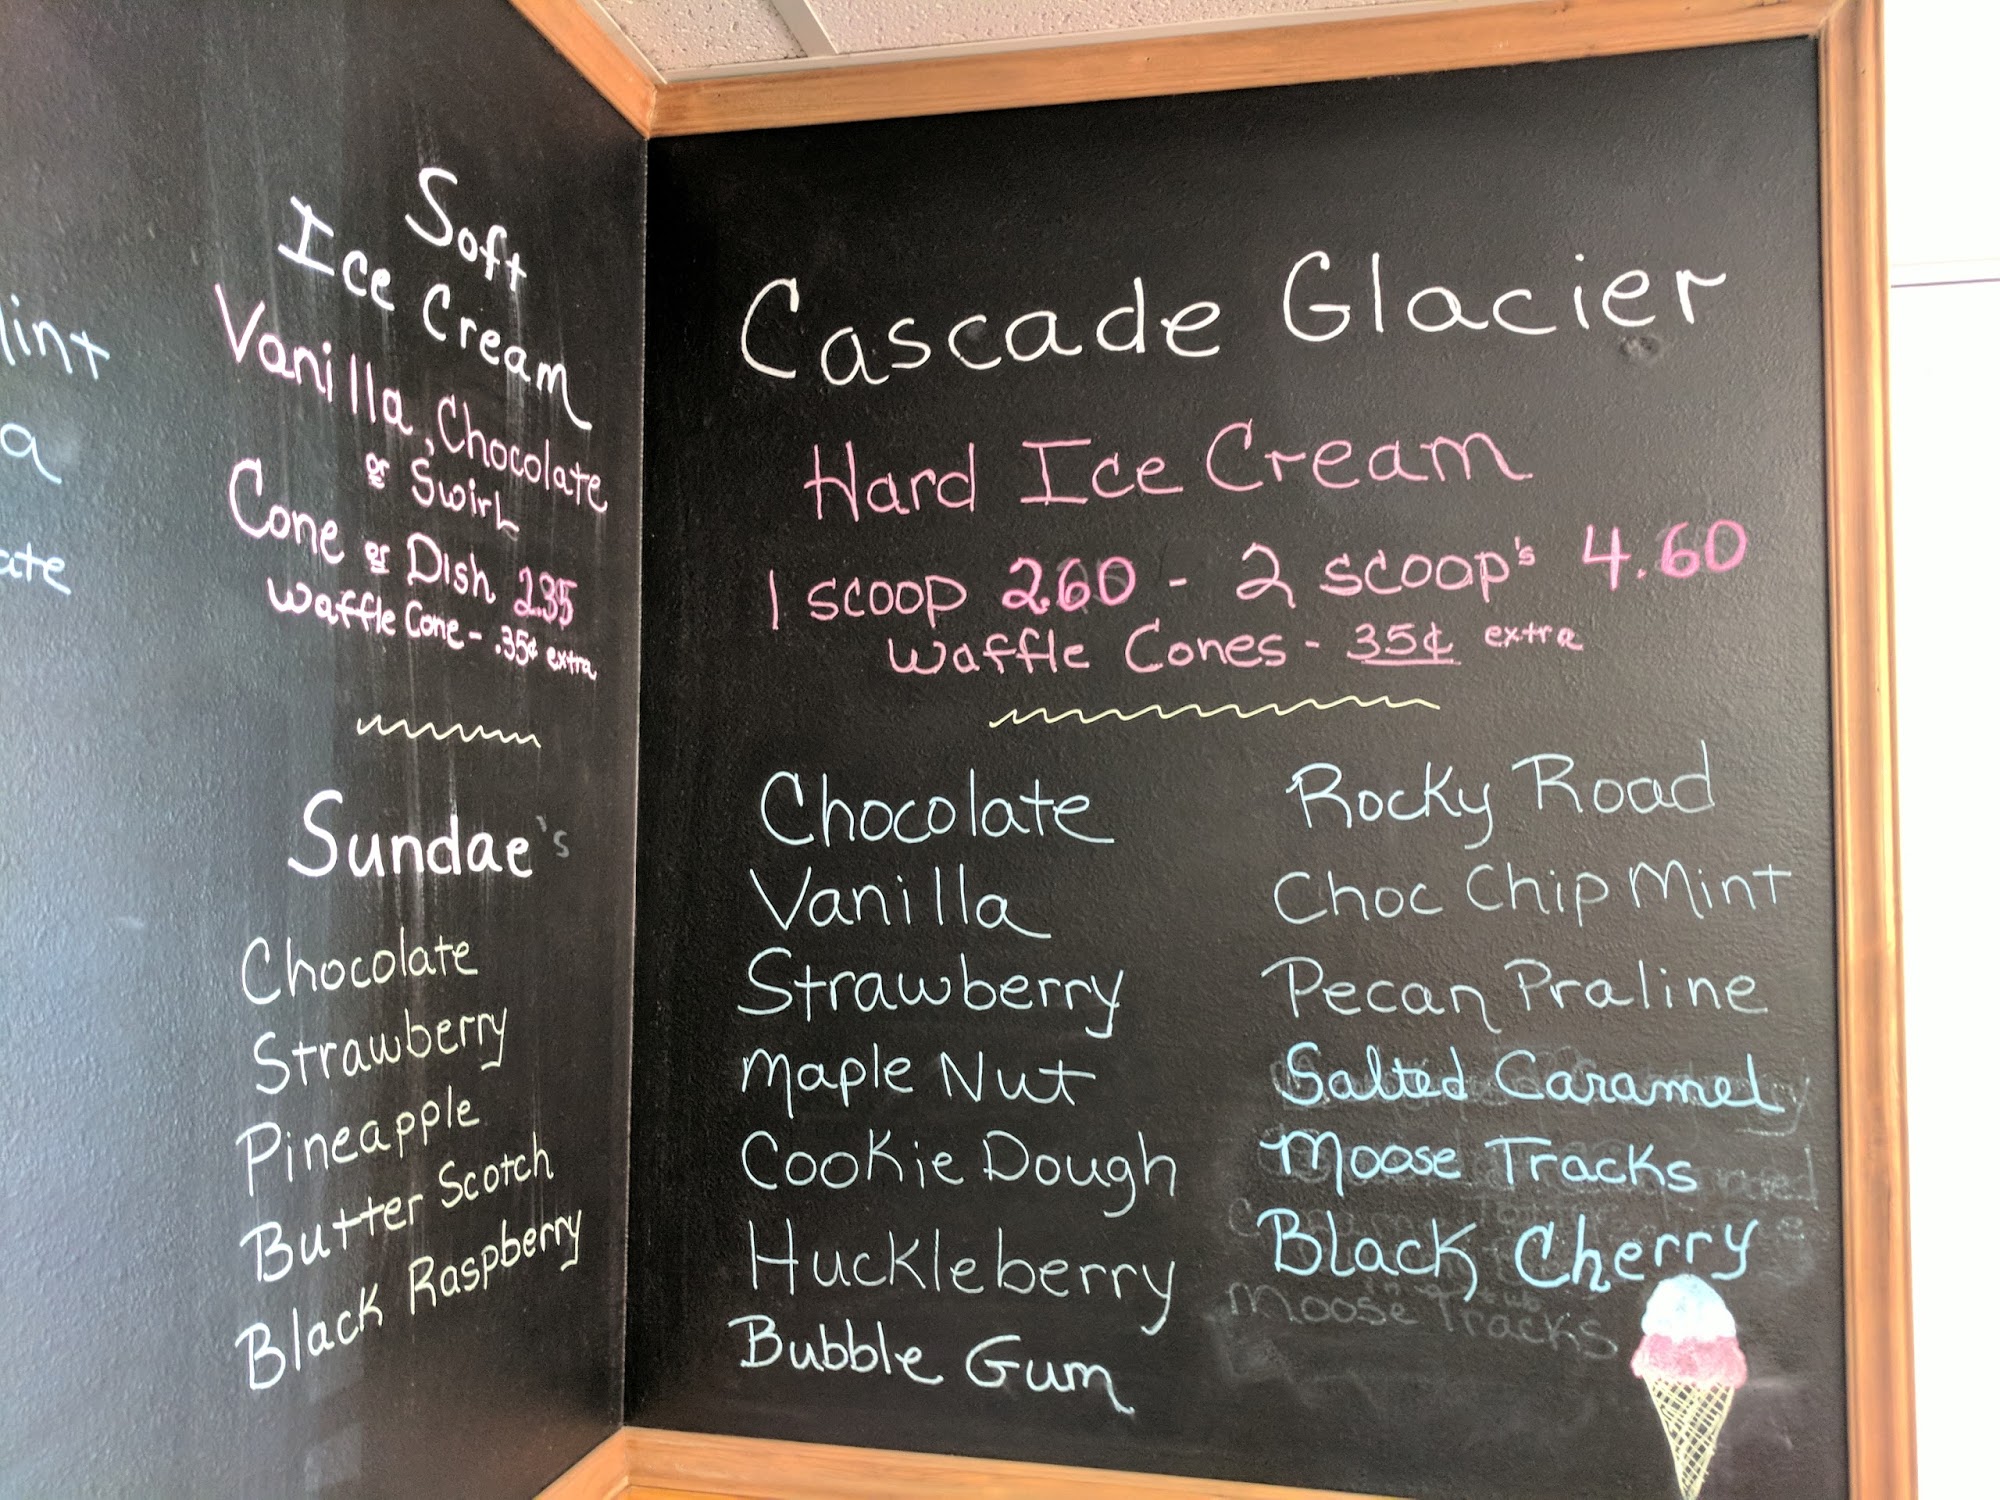 Soft
Ice Cream
Vanilla, Chocolate
or Swirl
Cone or Dish 2.35
Waffle Cone - .35¢ extra
Sundae's
Chocolate
Strawberry
Pineapple
Butter Scotch
Black Raspberry
Cascade Glacier
Hard Ice Cream
1 scoop 2.60 - 2 scoop's 4.60
Waffle Cones - 35¢ extra
Chocolate
Vanilla
Strawberry
Maple Nut
Cookie Dough
Huckleberry
Bubble Gum
Rocky Road
Choc Chip Mint
Pecan Praline
Salted Caramel
Moose Tracks
Black Cherry
Moose Tracks